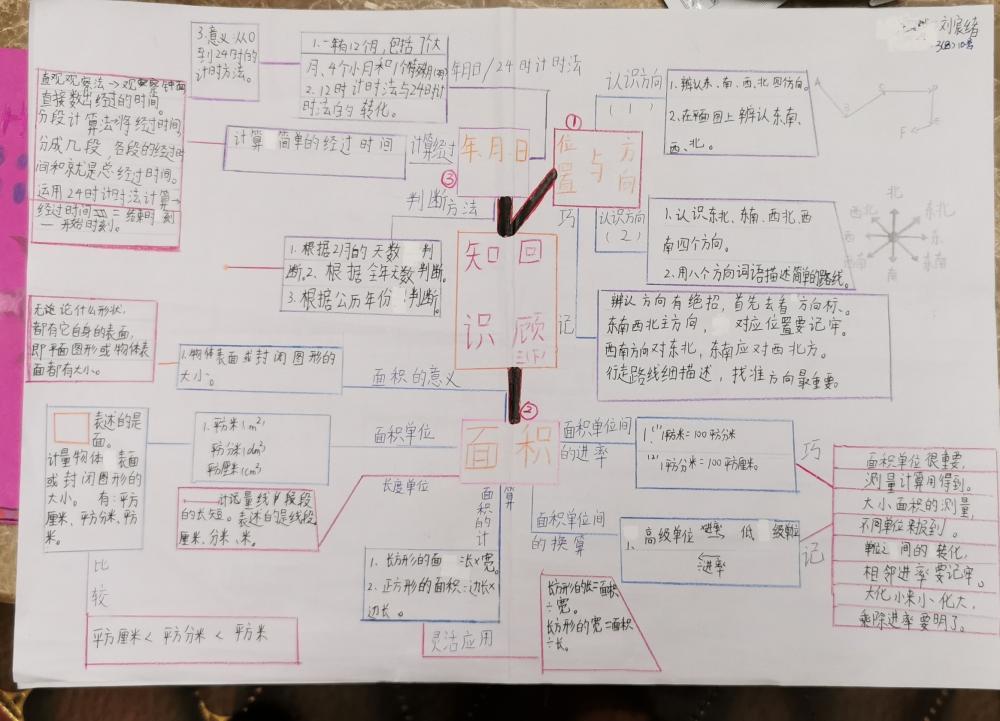 刘宸绪
3(8)10号
知识回顾
三(下)
①
位置与方向
认识方向
(1)
1.辨认东、南、西、北四个方向。
2.在平面图上辨认东南、
西、北。
认识方向
(2)
1.认识东北、东南、西北、西
南四个方向。
2.用八个方向词语描述简单的路线。
北
西北 东北
西 东
西南 东南
南
巧
记
辨认方向有绝招,首先去看方向标、。
东南西北主方向, 对应位置要记牢。
西南方向对东北,东南应对西北方。
行走路线细描述,找准方向最重要。
③
年、月、日
年月日/24时计时法
1.一年有12个月,包括7个大
月、4个小月和1个特殊月
2.12时计时法与24时计
时法的转化。
3.意义:从0
到24时的
计时方法。
计算经过
计算简单的经过时间
直观观察法→观察钟面
直接数出经过的时间
分段计算法:将经过时间
分成几段,各段的经过时
间和就是总经过时间。
运用24时计时法计算→
经过时间=结束时刻
—开始时刻。
判断方法
1.根据2月的天数判
断。2、根据全年天数判断。
3.根据公历年份判断。
②
面积
面积的意义
1.物体表面或封闭图形的
大小。
无论论什么形状,
都有它自身的表面,
即平面图形或物体表
面都有大小。
面积单位
1.平方米(m²)
平方分米(dm²)
平方厘米(cm²)
表述的是
面。
计量物体表面
或封闭图形的
大小。有:平方
厘米、平方分米、平方
米。
比
较
平方厘米<平方分米<平方米
长度单位
的长短。表述的是线段
厘米、分米、米。
面积的计算
1.长方形的面 =长×宽。
2.正方形的面积=边长×
边长。
灵活应用
长方形的长=面积
÷宽。
长方形的宽=面积
÷长。
面积单位间
的进率
1.(1)1平方米=100平方分米
(2)1平方分米=100平方厘米。
面积单位间
的换算
1、高级单位 进率 低级单位
进率
巧
记
面积单位很重要,
测量计算用得到。
大小面积的测量,
不同单位来报到。
单位之间的转化,
相邻进率要记牢。
大化小来小化大,
乘除进率要明了。